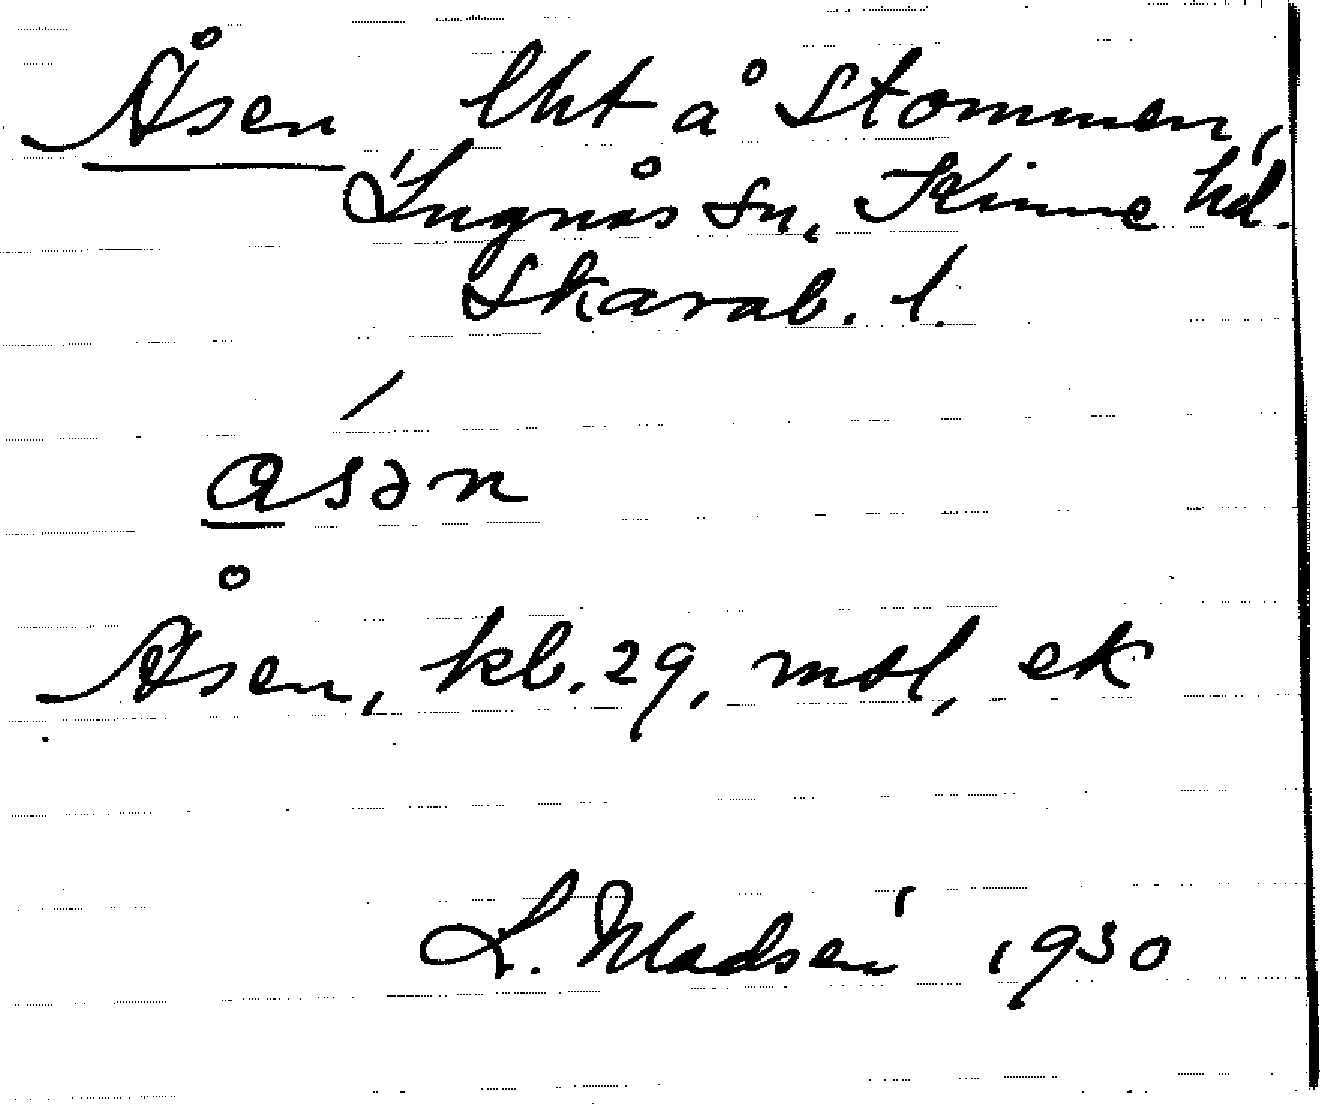 Åsen lht å Stommen,
Lugnås sn, Kinne hd.
Skarab. l.
ásən
Åsen, kb. 29, mtl, ek
L. Madsén 1930